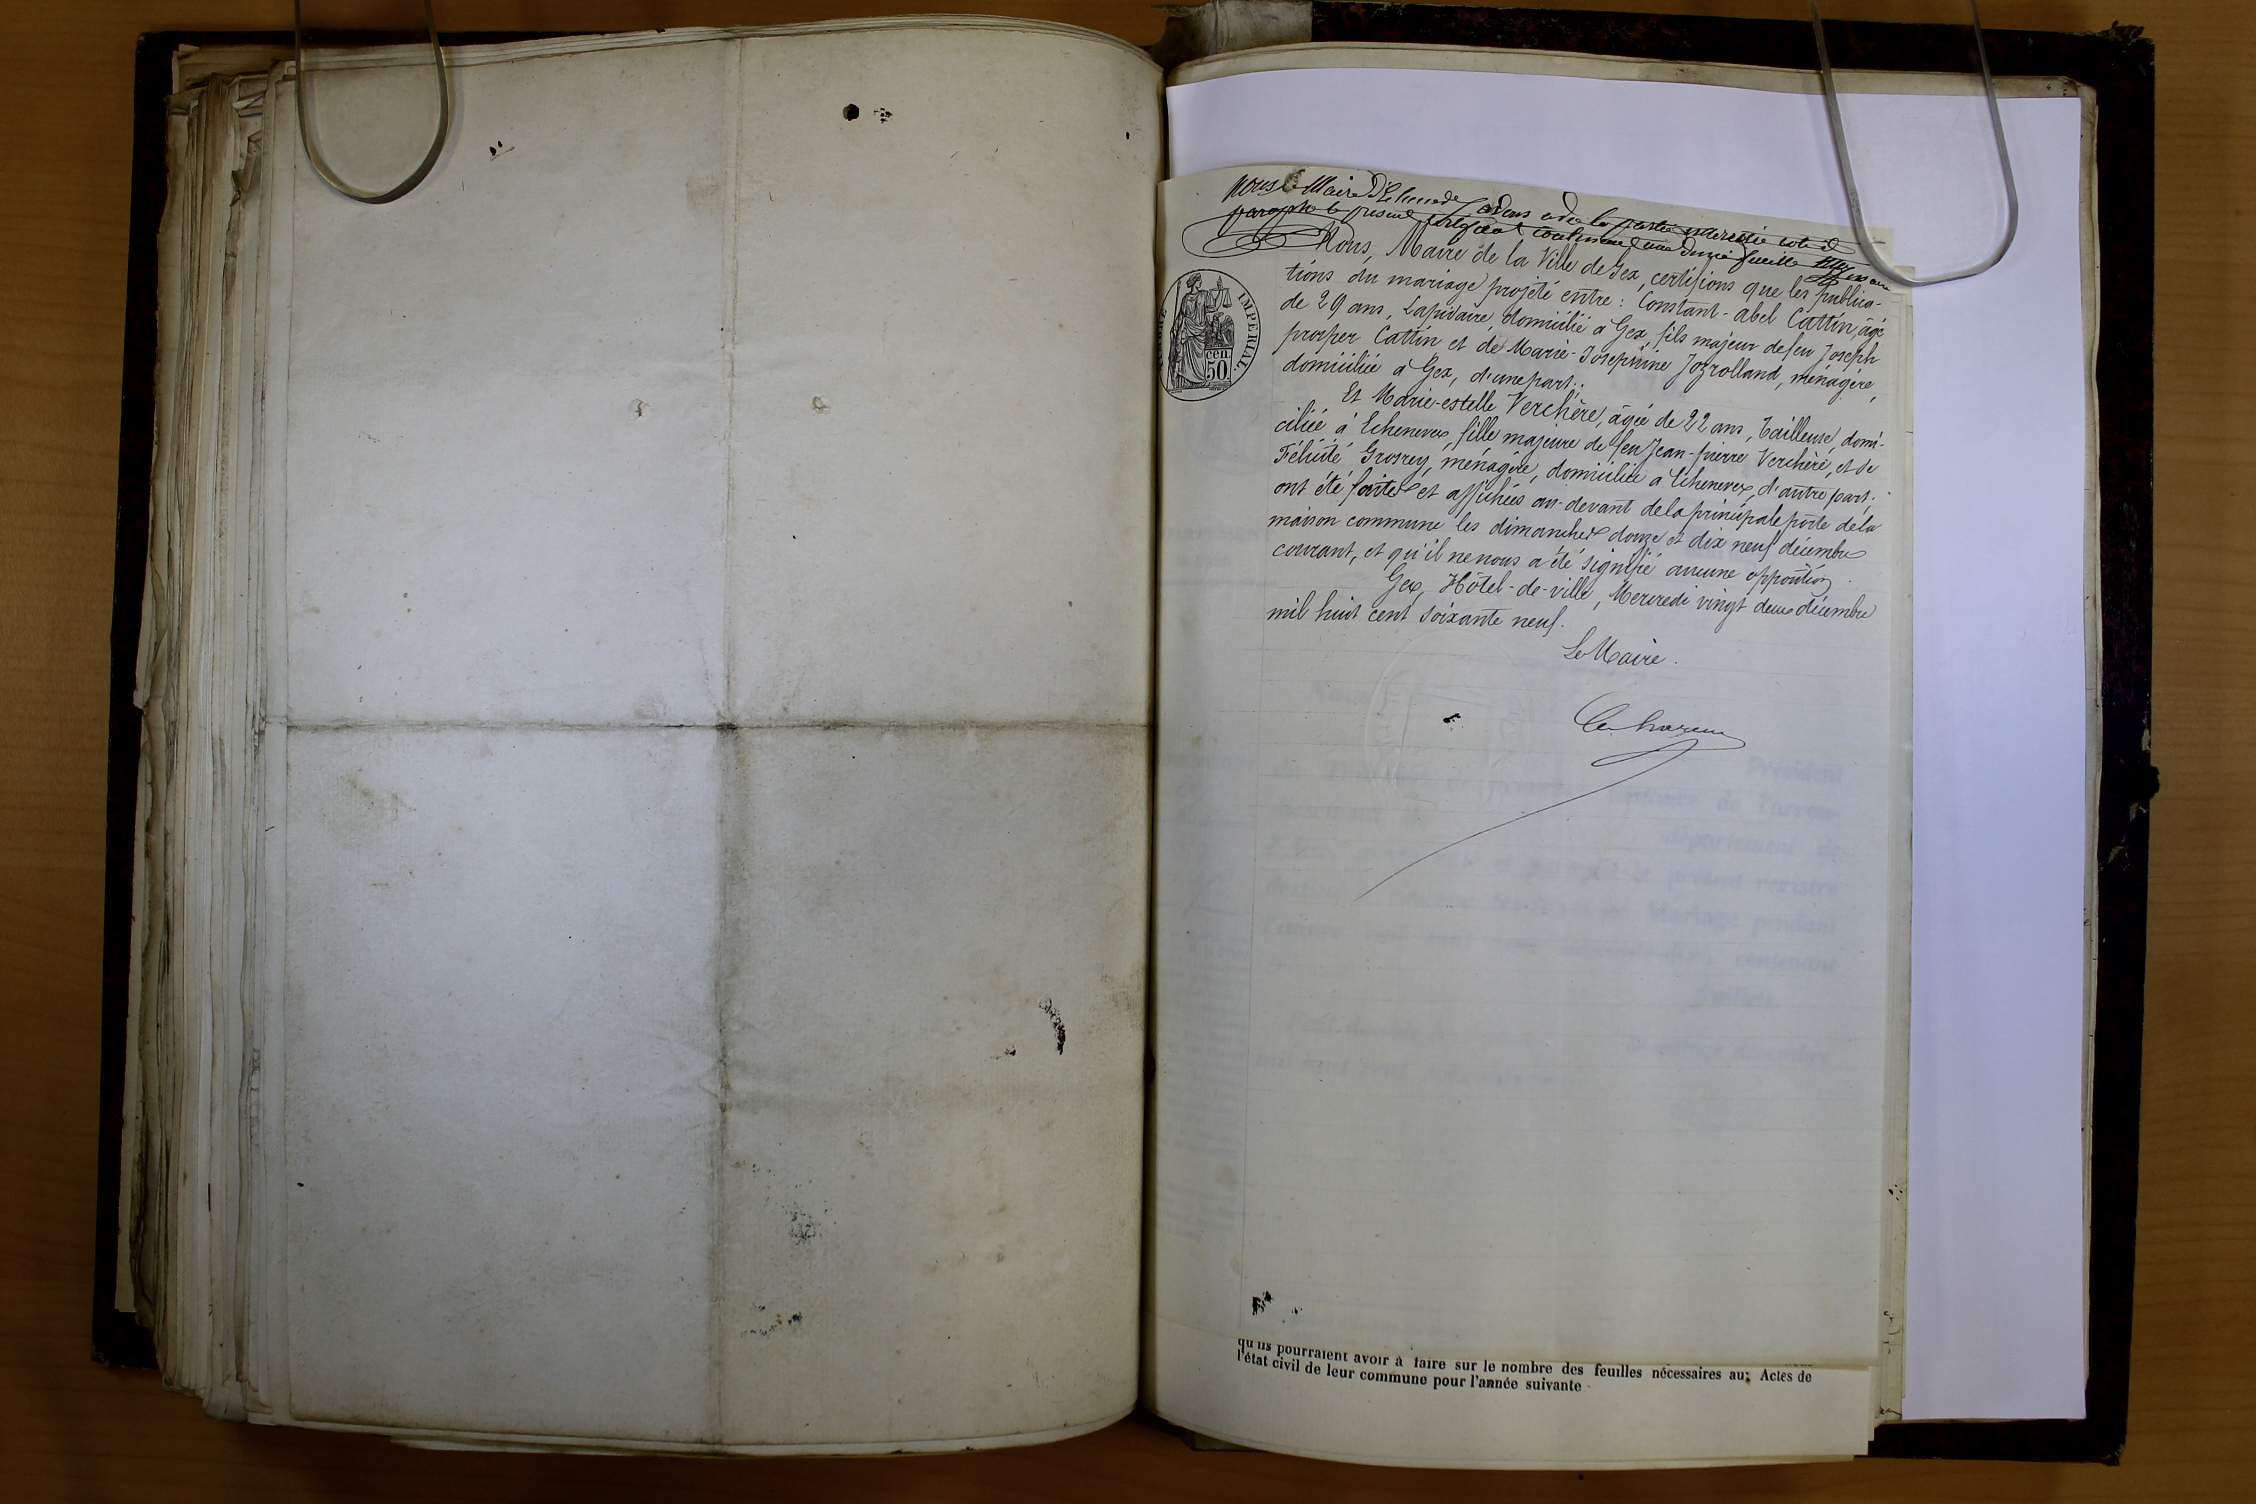 Nous le Maire d'Echenevex avons avec la partie intéressée coté et
paraphé le présent certificat contenant une demie feuille
Nous, Maire de la Ville de Gex, certifions que les publica-
tions du mariage projeté entre : Constant-abel Cattin, âgé
de 29 ans, Lapidaire, domicilié à Gex, fils majeur de feu Joseph
prosper Cattin et de Marie-Josephine Jozrolland, ménagère,
domiciliée à Gex, d'une part.
Et Marie-estelle Verchère, âgée de 22 ans, Tailleuse, domi-
ciliée à Echenevex, fille majeure de feu Jean-pierre Verchère, et de
Félicité Grosrey, ménagère, domiciliée à Echenevex, d'autre part.
ont été faites et affichées au-devant de la principale porte de la
maison commune les dimanches douze et dix neuf décembre
courant, et qu'il ne nous a été signifié aucune opposition.
Gex, Hôtel-de-ville, Mercredi vingt deux décembre
mil huit cent soixante neuf.
Le Maire.
IMPERIAL.
cen.
50
qu'ils pourraient avoir à faire sur le nombre des feuilles nécessaires au: Actes de
l'état civil de leur commune pour l'année suivante